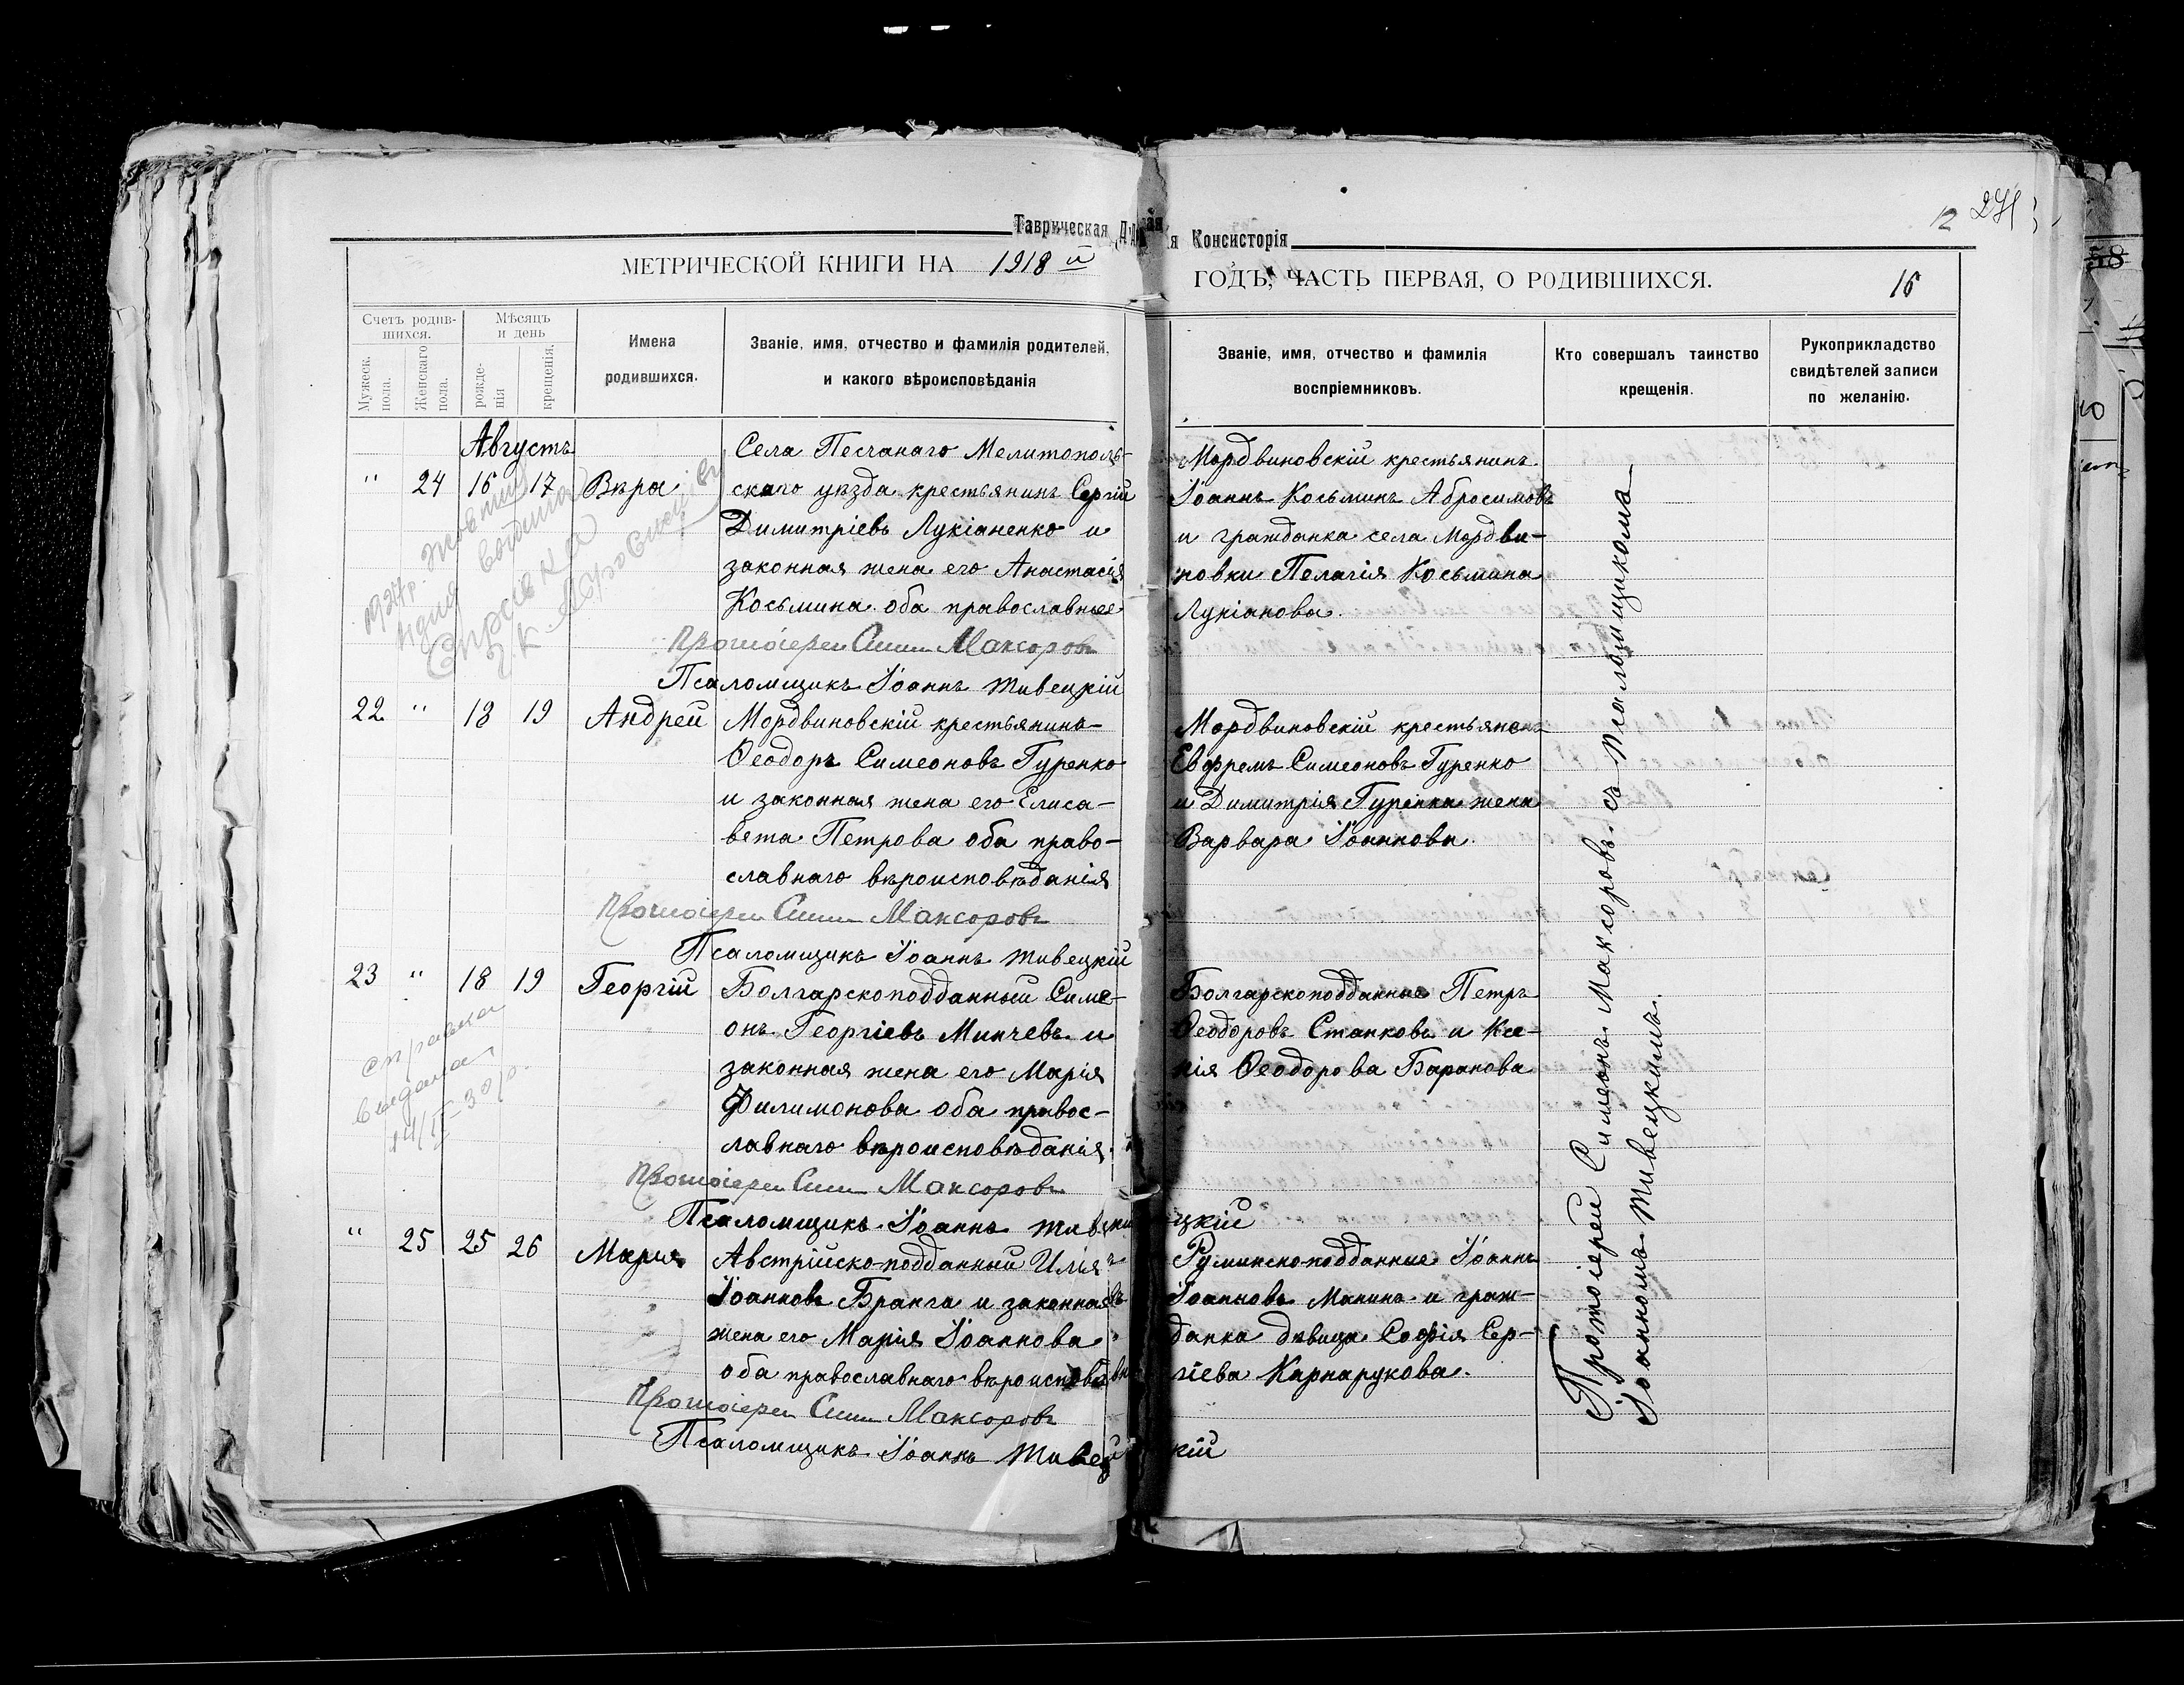 Таврическая Консисторія
12 271
МЕТРИЧЕСКОЙ КНИГИ НА 1918 й ГОДЪ, ЧАСТЬ ПЕРВАЯ, О РОДИВШИХСЯ.
16
Счетъ родив-
шихся.
Мужеск.
пола.
Женскаго
пола.
Мѣсяцъ
и день
рожде-
нія
крещенія.
Имена
родившихся.
Званіе, имя, отчество и фамилія родителей,
и какого вѣроисповѣданія
Званіе, имя, отчество и фамилія
воспріемниковъ.
Кто совершалъ таинство
крещенія.
Рукоприкладство
свидѣтелей записи
по желанію.
Августъ
" 24 16 17 Вѣра
Села Песчанаго Мелитополь-
скаго уѣзда крестьянинъ Сергій
Димитріевъ Лукіаненко и
законная жена его Анастасія
Косьмина оба православные
Протоіерей Сим Максоровъ
Псаломщикъ Іоаннъ Живецкій
Мордвиновскій крестьянинъ
Іоаннъ Косьминъ Абросимовъ
и гражданка села Мордви-
новки Пелагія Косьмина
Лукіанова.
22 " 18 19 Андрей
Мордвиновскій крестьянинъ
Ѳеодоръ Симеоновъ Гуренко
и законная жена его Елиса-
вета Петрова оба право-
славнаго вѣроисповѣданія
Протоіерей Сим Максоровъ
Псаломщикъ Іоаннъ Живецкій
Мордвиновскій крестьянинъ
Евфремъ Симеоновъ Гуренко
и Димитрія Гуренка жена
Варвара Іоаннова.
23 " 18 19 Георгій
Болгарскоподданный Симе-
онъ Георгіевъ Минчевъ и
законная жена его Марія
Филимонова оба правос-
лавнаго вѣроисповѣданія.
Протоіерей Сим Максоровъ
Псаломщикъ Іоаннъ Живецкій
Болгарскоподданные Петръ
Ѳеодоровъ Станковъ и Ксе-
нія Ѳеодорова Баранова
справка
выдана
" 25 25 26 Марія
Австрійско-подданный Илія
Іоанновъ Бранга и законная
жена его Марія Іоаннова
оба православнаго вѣроисповѣ
Протоіерей Сим Максоровъ
Псаломщикъ Іоаннъ Живецкій
Румынскоподданные Іоаннъ
Іоанновъ Манинъ и граж-
данка дѣвица Софія Сер-
гіева Карнарукова.
Протоіерей Симеонъ Максоровъ съ Псаломщикомъ
Іоанномъ Живецкимъ.
58